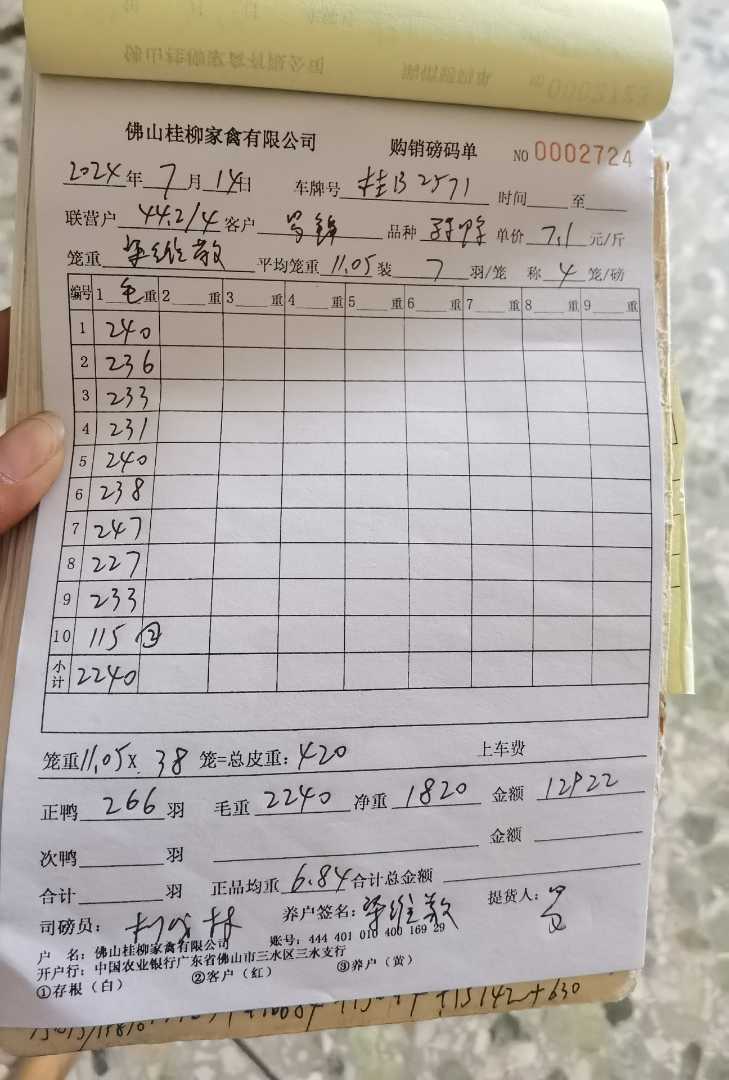 佛山桂柳家禽有限公司 购销磅码单 NO 0002724
2024年 7月 14日 车牌号 桂B2571 时间 至
联营户 44.2/4 客户 品种 单价 7.1 元/斤
笼重 梁维敬 平均笼重 11.05 装 7 羽/笼 称 4 笼/磅
编号 1 毛 重 2 重 3 重 4 重 5 重 6 重 7 重 8 重 9 重
1 240
2 236
3 233
4 231
5 240
6 238
7 247
8 227
9 233
10 115 ②
小计 2240
笼重11.05 x 38 笼=总皮重: 420 上车费
正鸭 266 羽 毛重 2240 净重 1820 金额 12922
次鸭 羽 金额
合计 羽 正品均重 6.84 合计总金额
司磅员: 养户签名: 梁维敬 提货人:
户 名: 佛山桂柳家禽有限公司 账号: 444 401 010 400 169 29
开户行: 中国农业银行广东省佛山市三水区三水支行
①存根(白) ②客户(红) ③养户(黄)